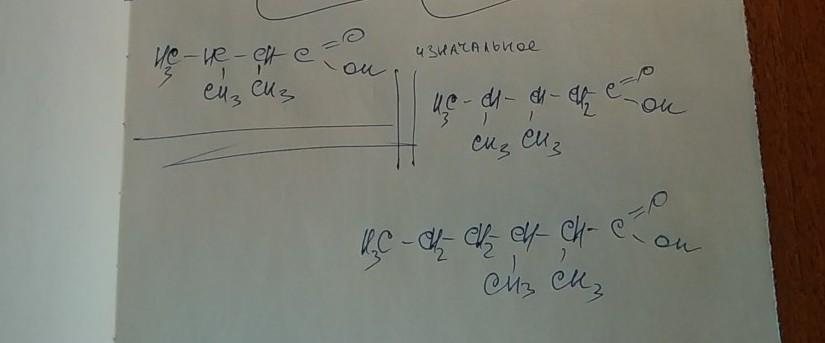 H₃C – HC – CH – C =O
– OH
CH₃ CH₃
изначальное
H₃C – CH – CH – CH₂ – C =O
– OH
CH₃ CH₃
H₃C – CH₂ – CH₂ – CH – CH – C =O
– OH
CH₃ CH₃